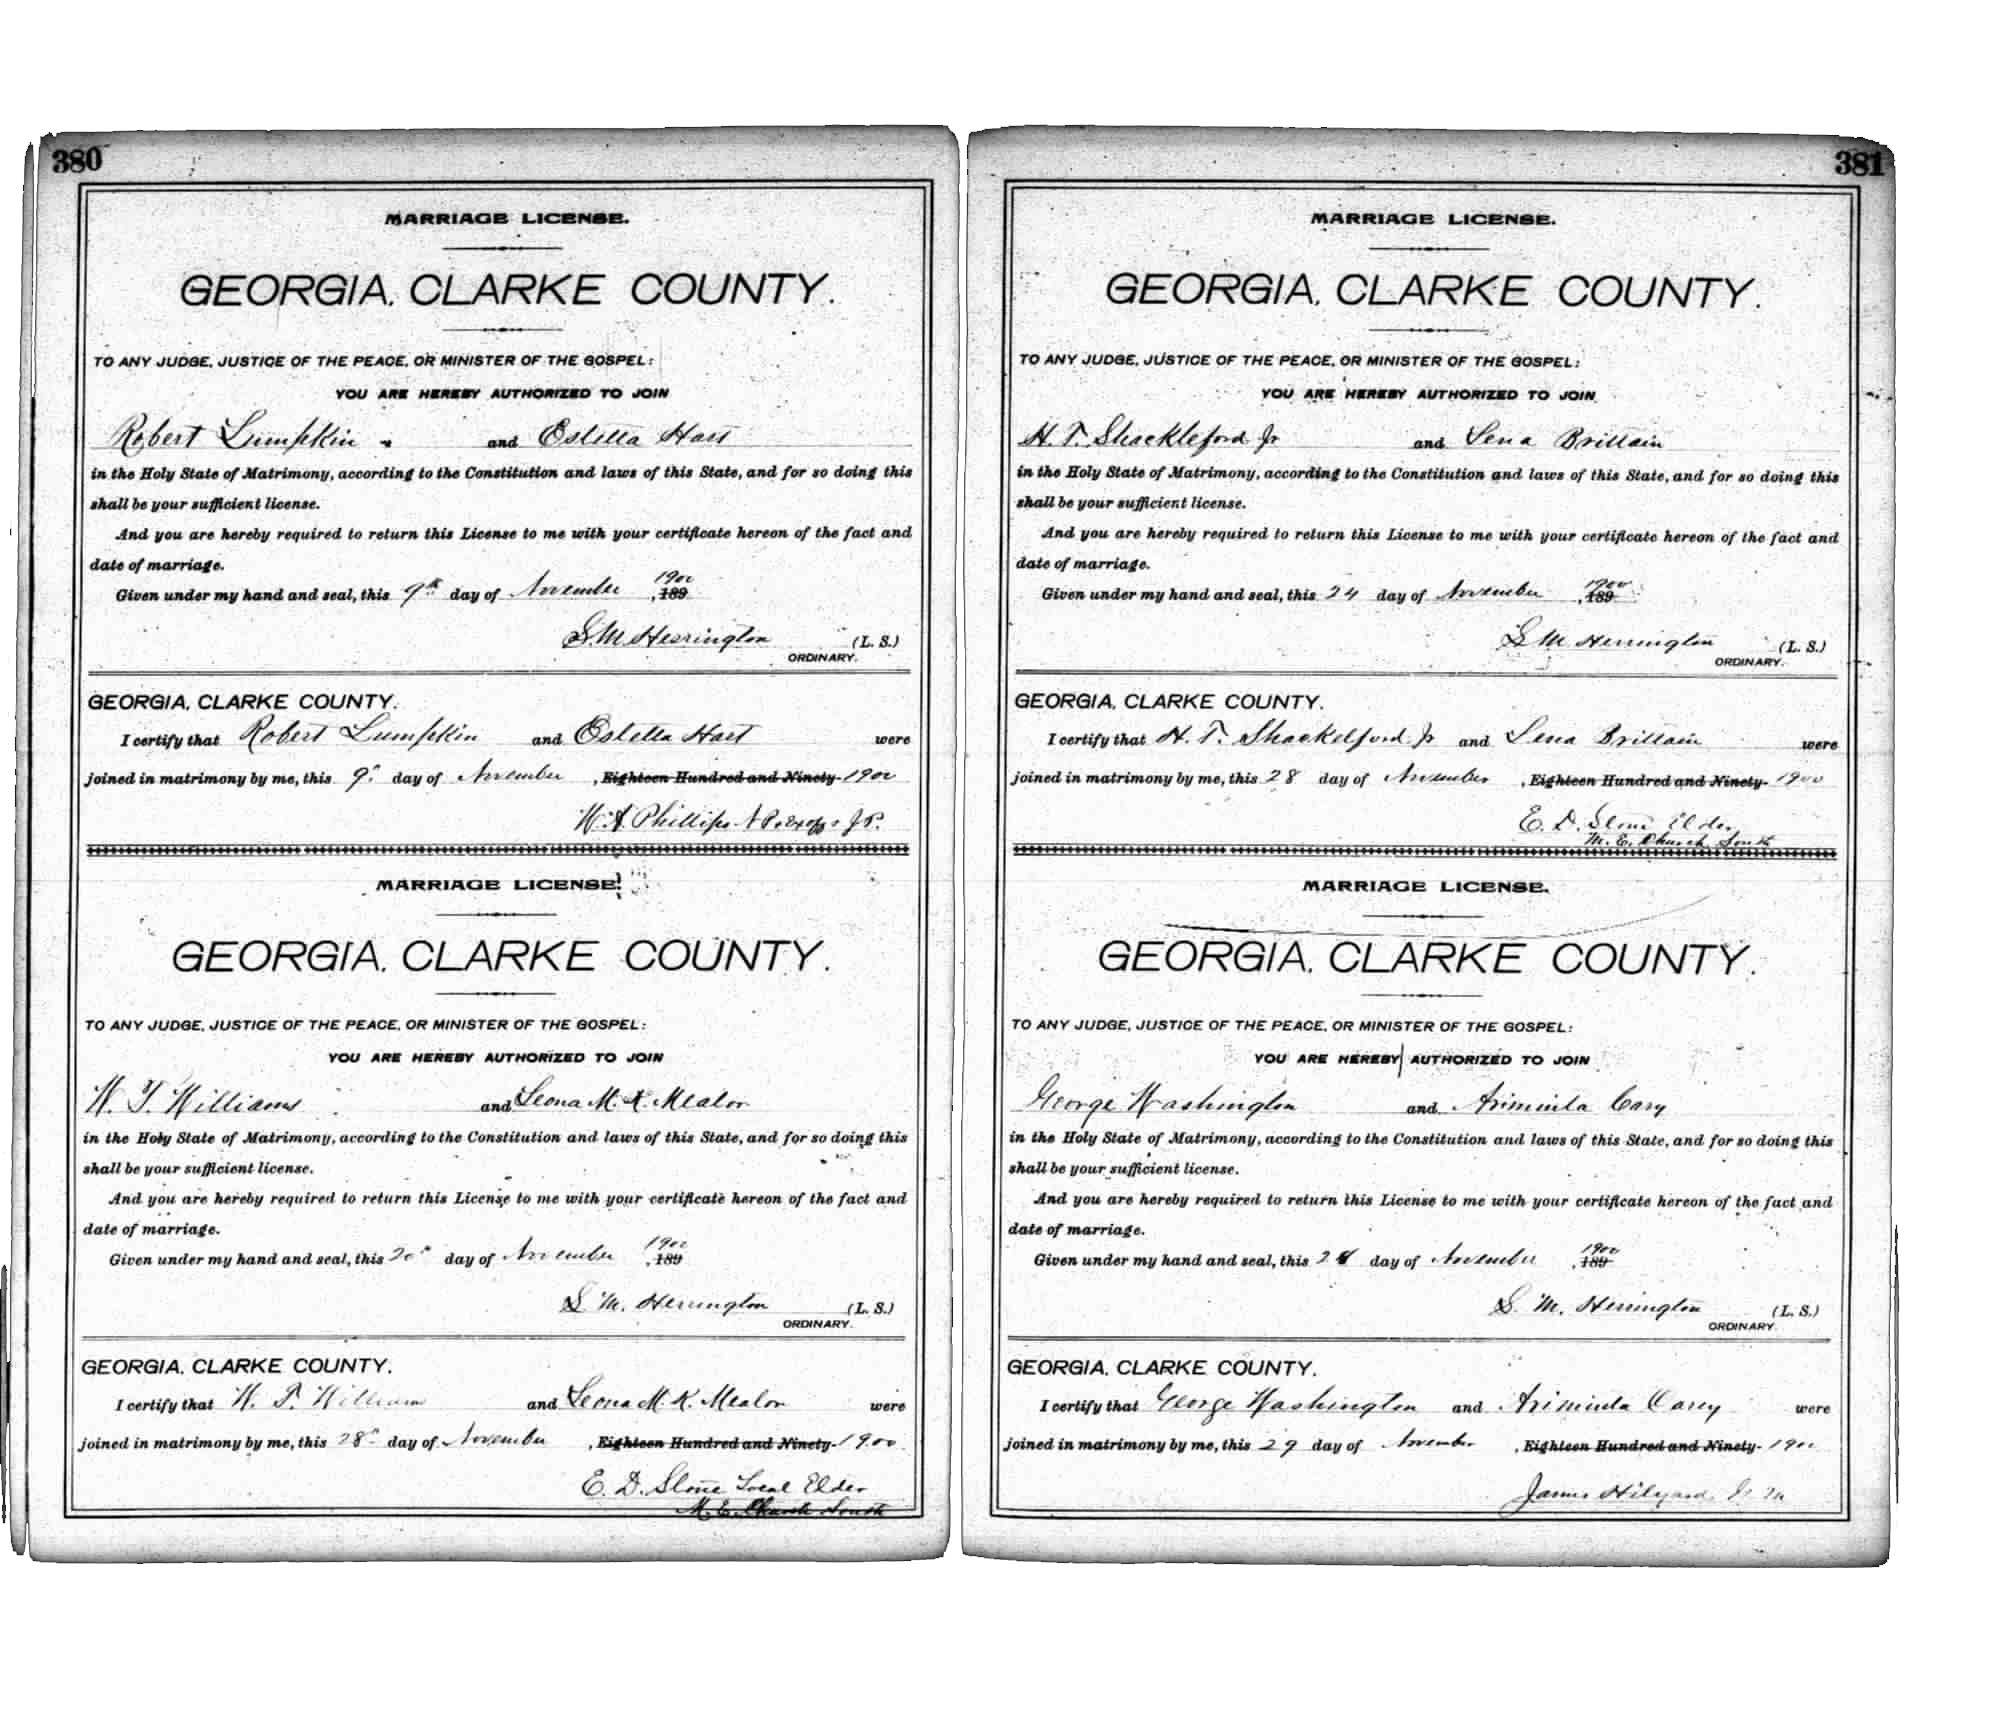 380
MARRIAGE LICENSE.
GEORGIA, CLARKE COUNTY.
TO ANY JUDGE, JUSTICE OF THE PEACE, OR MINISTER OF THE GOSPEL:
YOU ARE HEREBY AUTHORIZED TO JOIN
Robert Lumpkin and Estella Hart
in the Holy State of Matrimony, according to the Constitution and laws of this State, and for so doing this
shall be your sufficient license.
And you are hereby required to return this License to me with your certificate hereon of the fact and
date of marriage.
Given under my hand and seal, this 9th day of November 1900 , 189
S. M. Herrington (L. S.)
ORDINARY.
GEORGIA, CLARKE COUNTY.
I certify that Robert Lumpkin and Estella Hart were
joined in matrimony by me, this 9th day of November , Eighteen Hundred and Ninety- 1900
W. A. Phillips N P. & exoff J P.
MARRIAGE LICENSE.
GEORGIA, CLARKE COUNTY.
TO ANY JUDGE, JUSTICE OF THE PEACE, OR MINISTER OF THE GOSPEL:
YOU ARE HEREBY AUTHORIZED TO JOIN
W. T. Williams and Leona M. K. Mealor
in the Holy State of Matrimony, according to the Constitution and laws of this State, and for so doing this
shall be your sufficient license.
And you are hereby required to return this License to me with your certificate hereon of the fact and
date of marriage.
Given under my hand and seal, this 20th day of November 1900 , 189
S. M. Herrington (L. S.)
ORDINARY.
GEORGIA, CLARKE COUNTY.
I certify that W. T. William and Leona M. K. Mealor were
joined in matrimony by me, this 28th day of November , Eighteen Hundred and Ninety- 1900
E. D. Stone Local Elder
M. E. Church South
381
MARRIAGE LICENSE.
GEORGIA, CLARKE COUNTY.
TO ANY JUDGE, JUSTICE OF THE PEACE, OR MINISTER OF THE GOSPEL:
YOU ARE HEREBY AUTHORIZED TO JOIN
H. T. Shackleford Jr and Lena Brittain
in the Holy State of Matrimony, according to the Constitution and laws of this State, and for so doing this
shall be your sufficient license.
And you are hereby required to return this License to me with your certificate hereon of the fact and
date of marriage.
Given under my hand and seal, this 24 day of November 1900 , 189
S. M. Herrington (L. S.)
ORDINARY.
GEORGIA, CLARKE COUNTY.
I certify that H. T. Shackelford Jr and Lena Brittain were
joined in matrimony by me, this 28 day of November , Eighteen Hundred and Ninety- 1900
E. D. Stone Elder
M. E. Church South
MARRIAGE LICENSE.
GEORGIA, CLARKE COUNTY.
TO ANY JUDGE, JUSTICE OF THE PEACE, OR MINISTER OF THE GOSPEL:
YOU ARE HEREBY AUTHORIZED TO JOIN
George Washington and Ariminta Cary
in the Holy State of Matrimony, according to the Constitution and laws of this State, and for so doing this
shall be your sufficient license.
And you are hereby required to return this License to me with your certificate hereon of the fact and
date of marriage.
Given under my hand and seal, this day of November 1900 , 189
S. M. Herrington (L. S.)
ORDINARY.
GEORGIA, CLARKE COUNTY.
I certify that George Washington and Ariminta Carey were
joined in matrimony by me, this 29 day of November , Eighteen Hundred and Ninety- 1900
James Hilyard